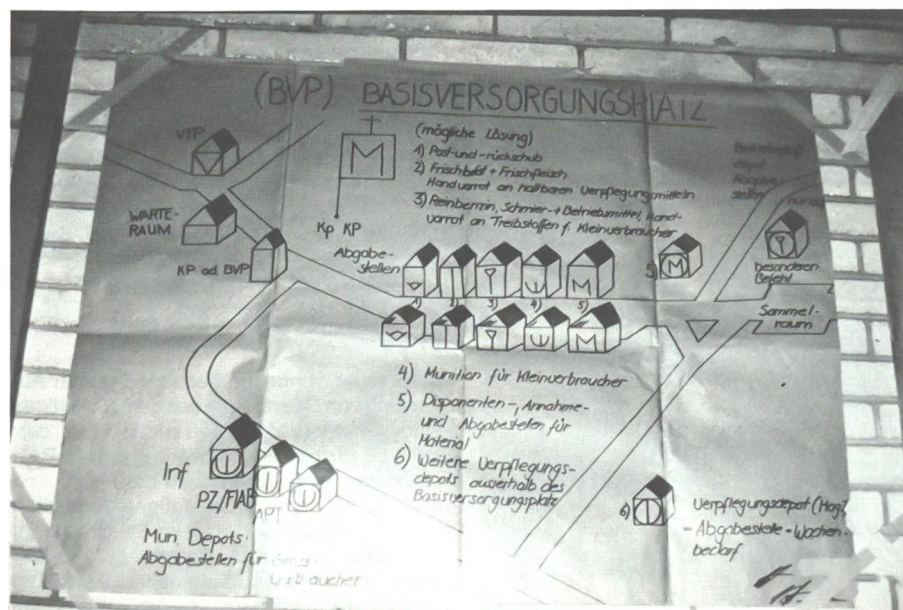 (BVP) BASISVERSORGUNGSPLATZ
(mögliche Lösung)
1) Post-und-rückschub
2) Frischbrot + Frischfleisch
Handvorrat an haltbaren Verpflegungsmitteln
3) Reinbenzin, Schmier-+ Betriebsmittel, Hand-
vorrat an Treibstoffen f. Kleinverbraucher
VTP
WARTE-
RAUM
KP od BVP
M
Kp KP
Abgabe-
stellen
1) 2) 3) 4) 5)
M
M
5) M
Betriebsstoff
depot
Abgabe-
stellen
nur auf
besonderen
Befehl
Sammel-
raum
4) Munition für Kleinverbraucher
5) Disponenten-, Annahme-
und Abgabestellen für
Material
6) Weitere Verpflegungs-
depots ausserhalb des
Basisversorgungsplatz
Inf
PZ/FlAB
APT
Mun Depots
Abgabestellen für
6)
Verpflegungsdepot (Mag)
- Abgabestelle - Wochen-
bedarf